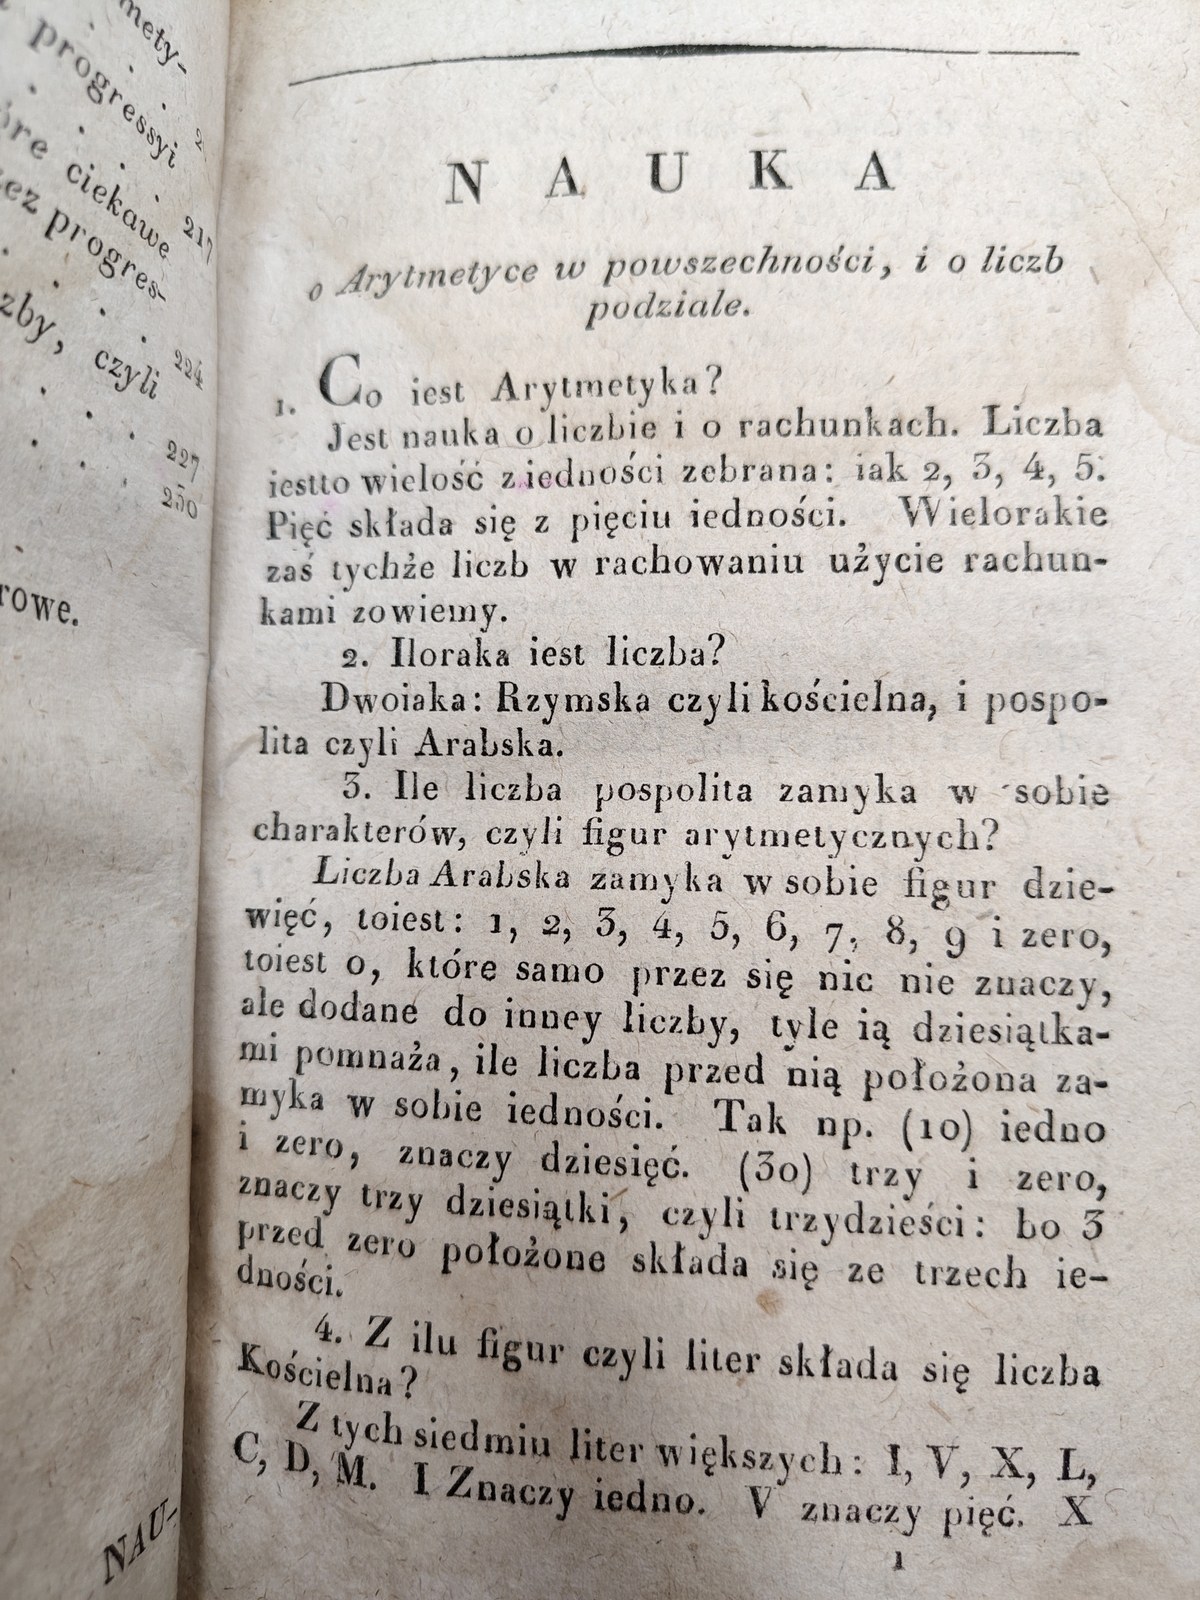 mety-
progressyi
ciekawe
217
progres-
224
czyli
227
230
rowe.
NAU-
NAUKA
o Arytmetyce w powszechności, i o liczb
podziale.
1. Co iest Arytmetyka?
Jest nauka o liczbie i o rachunkach. Liczba
iestto wielość z iedności zebrana: iak 2, 3, 4, 5.
Pięć składa się z pięciu iedności. Wielorakie
zaś tychże liczb w rachowaniu użycie rachun-
kami zowiemy.
2. Iloraka iest liczba?
Dwoiaka: Rzymska czyli kościelna, i pospo-
lita czyli Arabska.
3. Ile liczba pospolita zamyka w sobie
charakterów, czyli figur arytmetycznych?
Liczba Arabska zamyka w sobie figur dzie-
więć, toiest: 1, 2, 3, 4, 5, 6, 7, 8, 9 i zero,
toiest 0, które samo przez się nic nie znaczy,
ale dodane do inney liczby, tyle ią dziesiątka-
mi pomnaża, ile liczba przed nią położona za-
myka w sobie iedności. Tak np. (10) iedno
i zero, znaczy dziesięć. (30) trzy i zero,
znaczy trzy dziesiątki, czyli trzydzieści: bo 3
przed zero położone składa się ze trzech ie-
dności.
4. Z ilu figur czyli liter składa się liczba
Kościelna?
Z tych siedmiu liter większych: I, V, X, L,
C, D, M. I Znaczy iedno. V znaczy pięć. X
1